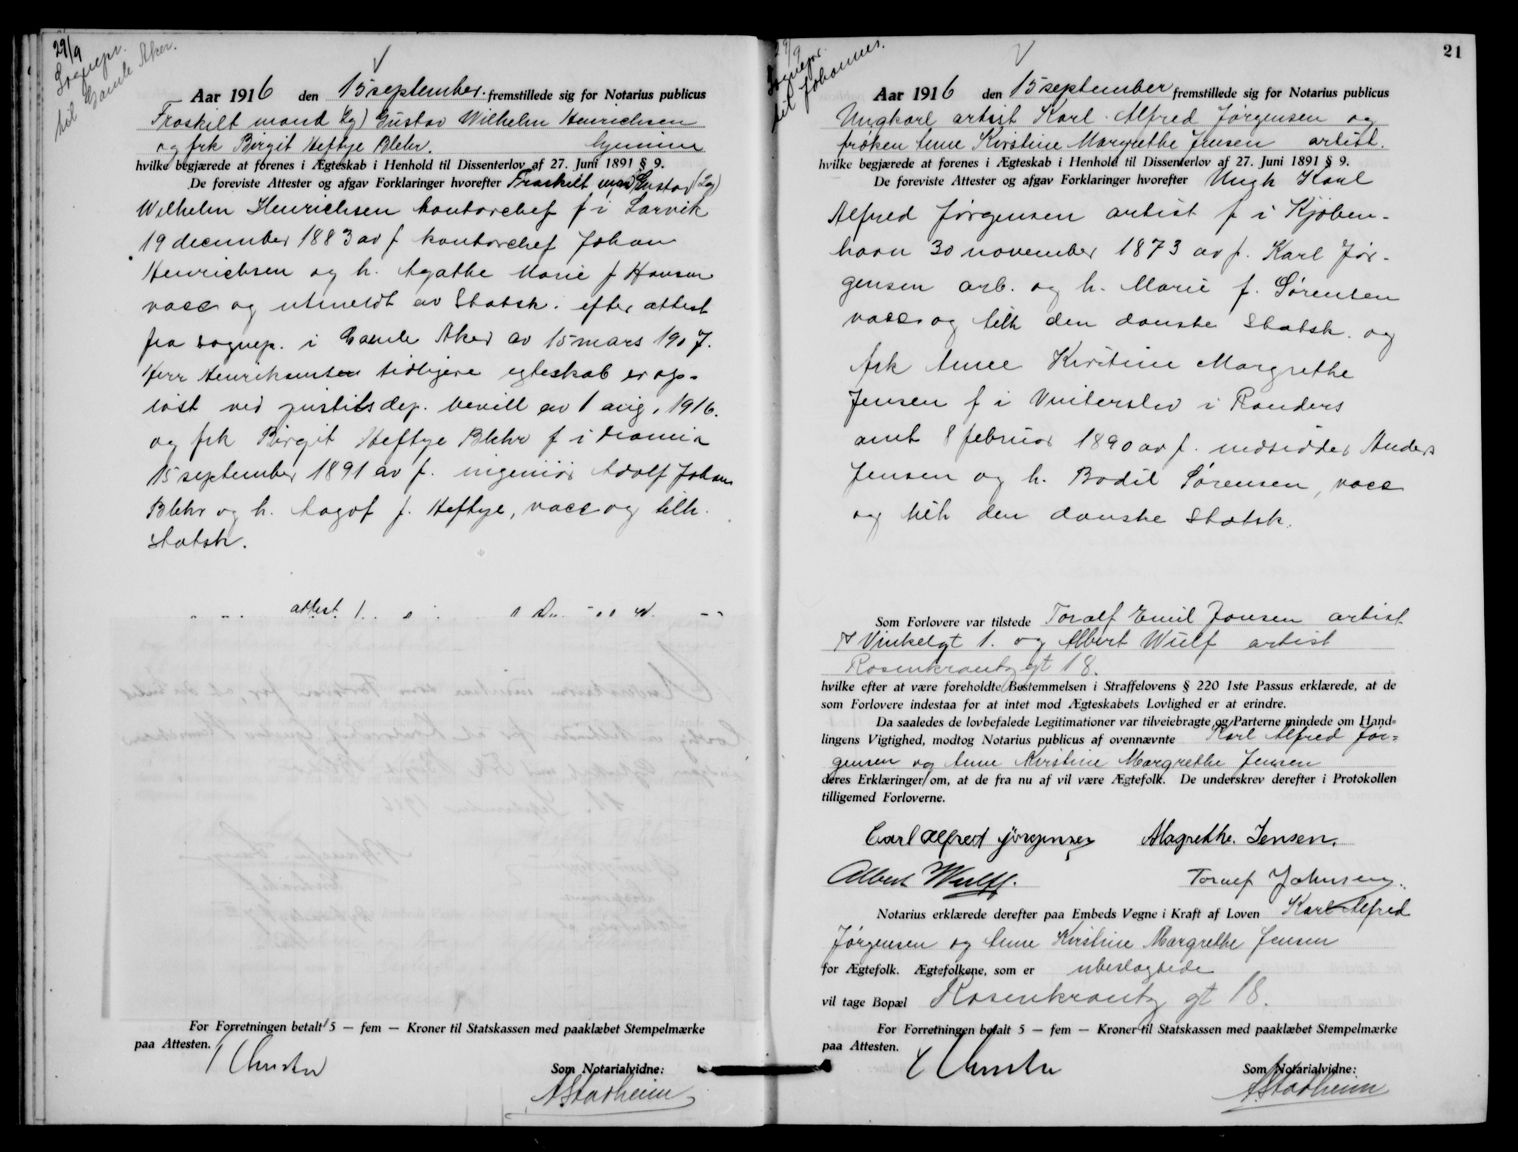 29/9
Sognepr.
til Gamle Aker.
Aar 1916 den 15 september fremstillede sig for Notarius publicus
Fraskilt mand (Eg) Gustav Wilhelm Henrichsen
og frk Birgit Heftye Blehr.
hvilke begjærede at forenes i Ægteskab i Henhold til Dissenterlov af 27. Juni 1891 § 9.
De foreviste Attester og afgav Forklaringer hvorefter Fraskilt mand Gustav
Wilhelm Henrichsen kontorchef f i Larvik
19 december 1883 av f kontorchef Johan
Henrichsen og h. Agathe Marie f Hansen
vacc og utmeldt av Statsk. efter attest
fra sognep. i Gamle Aker av 15 mars 1907.
Herr Henriksens tidligere egteskab er op-
løst ved justitsdep. bevill av 1 aug. 1916.
og frk Birgit Heftye Blehr f i
15 september 1891 av f. ingeniør Adolf Johan
Blehr og h. Aagot f. Heftye, vacc og tilh.
statsk.
attest
For Forretningen betalt 5 — fem — Kroner til Statskassen med paaklæbet Stempelmærke
paa Attesten.
Som Notarialvidne:
A Stadheim
21
29/9
Sognepr.
til Johannes.
Aar 1916 den 15 september fremstillede sig for Notarius publicus
Ungkarl artist Karl Alfred Jørgensen og
frøken Anne Kirstine Margrethe Jensen artist.
hvilke begjærede at forenes i Ægteskab i Henhold til Dissenterlov af 27. Juni 1891 § 9.
De foreviste Attester og afgav Forklaringer hvorefter Ungk Karl
Alfred Jørgensen artist f i Kjøben-
havn 30 november 1873 av f. Karl Jør-
gensen arb. og h. Marie f. Sørensen
vacc og tilh den danske Statsk. og
frk Anne Kirstine Margrethe
Jensen f i Vinterslev i Randers
amt 8 februar 1890 av f. indsidder Anders
Jensen og h. Bodil Sørensen, vacc
og tilh den danske Statsk.
Som Forlovere var tilstede Toralf Emil Jonsen artist
Vinkelgt 1. og Albert Wulf artist
Rosenkrantz gt 18.
hvilke efter at være foreholdte Bestemmelsen i Straffelovens § 220 1ste Passus erklærede, at de
som Forlovere indestaa for at intet mod Ægteskabets Lovlighed er at erindre.
Da saaledes de lovbefalede Legitimationer var tilveiebragte og Parterne mindede om Hand-
lingens Vigtighed, modtog Notarius publicus af ovennævnte Karl Alfred Jør-
gensen og Anne Kirstine Margrethe Jensen
deres Erklæringer om, at de fra nu af vil være Ægtefolk. De underskrev derefter i Protokollen
tilligemed Forloverne.
Carl Alfred Jørgensen Magrethe. Jensen.
Albert Wulff. Toralf Johnsen.
Notarius erklærede derefter paa Embeds Vegne i Kraft af Loven Karl Alfred
Jørgensen og Anne Kirstine Margrethe Jensen
for Ægtefolk. Ægtefolkene, som er ubeslagtede
vil tage Bopæl Rosenkrantz gt 18.
For Forretningen betalt 5 — fem — Kroner til Statskassen med paaklæbet Stempelmærke
paa Attesten.
Som Notarialvidne:
A Stadheim